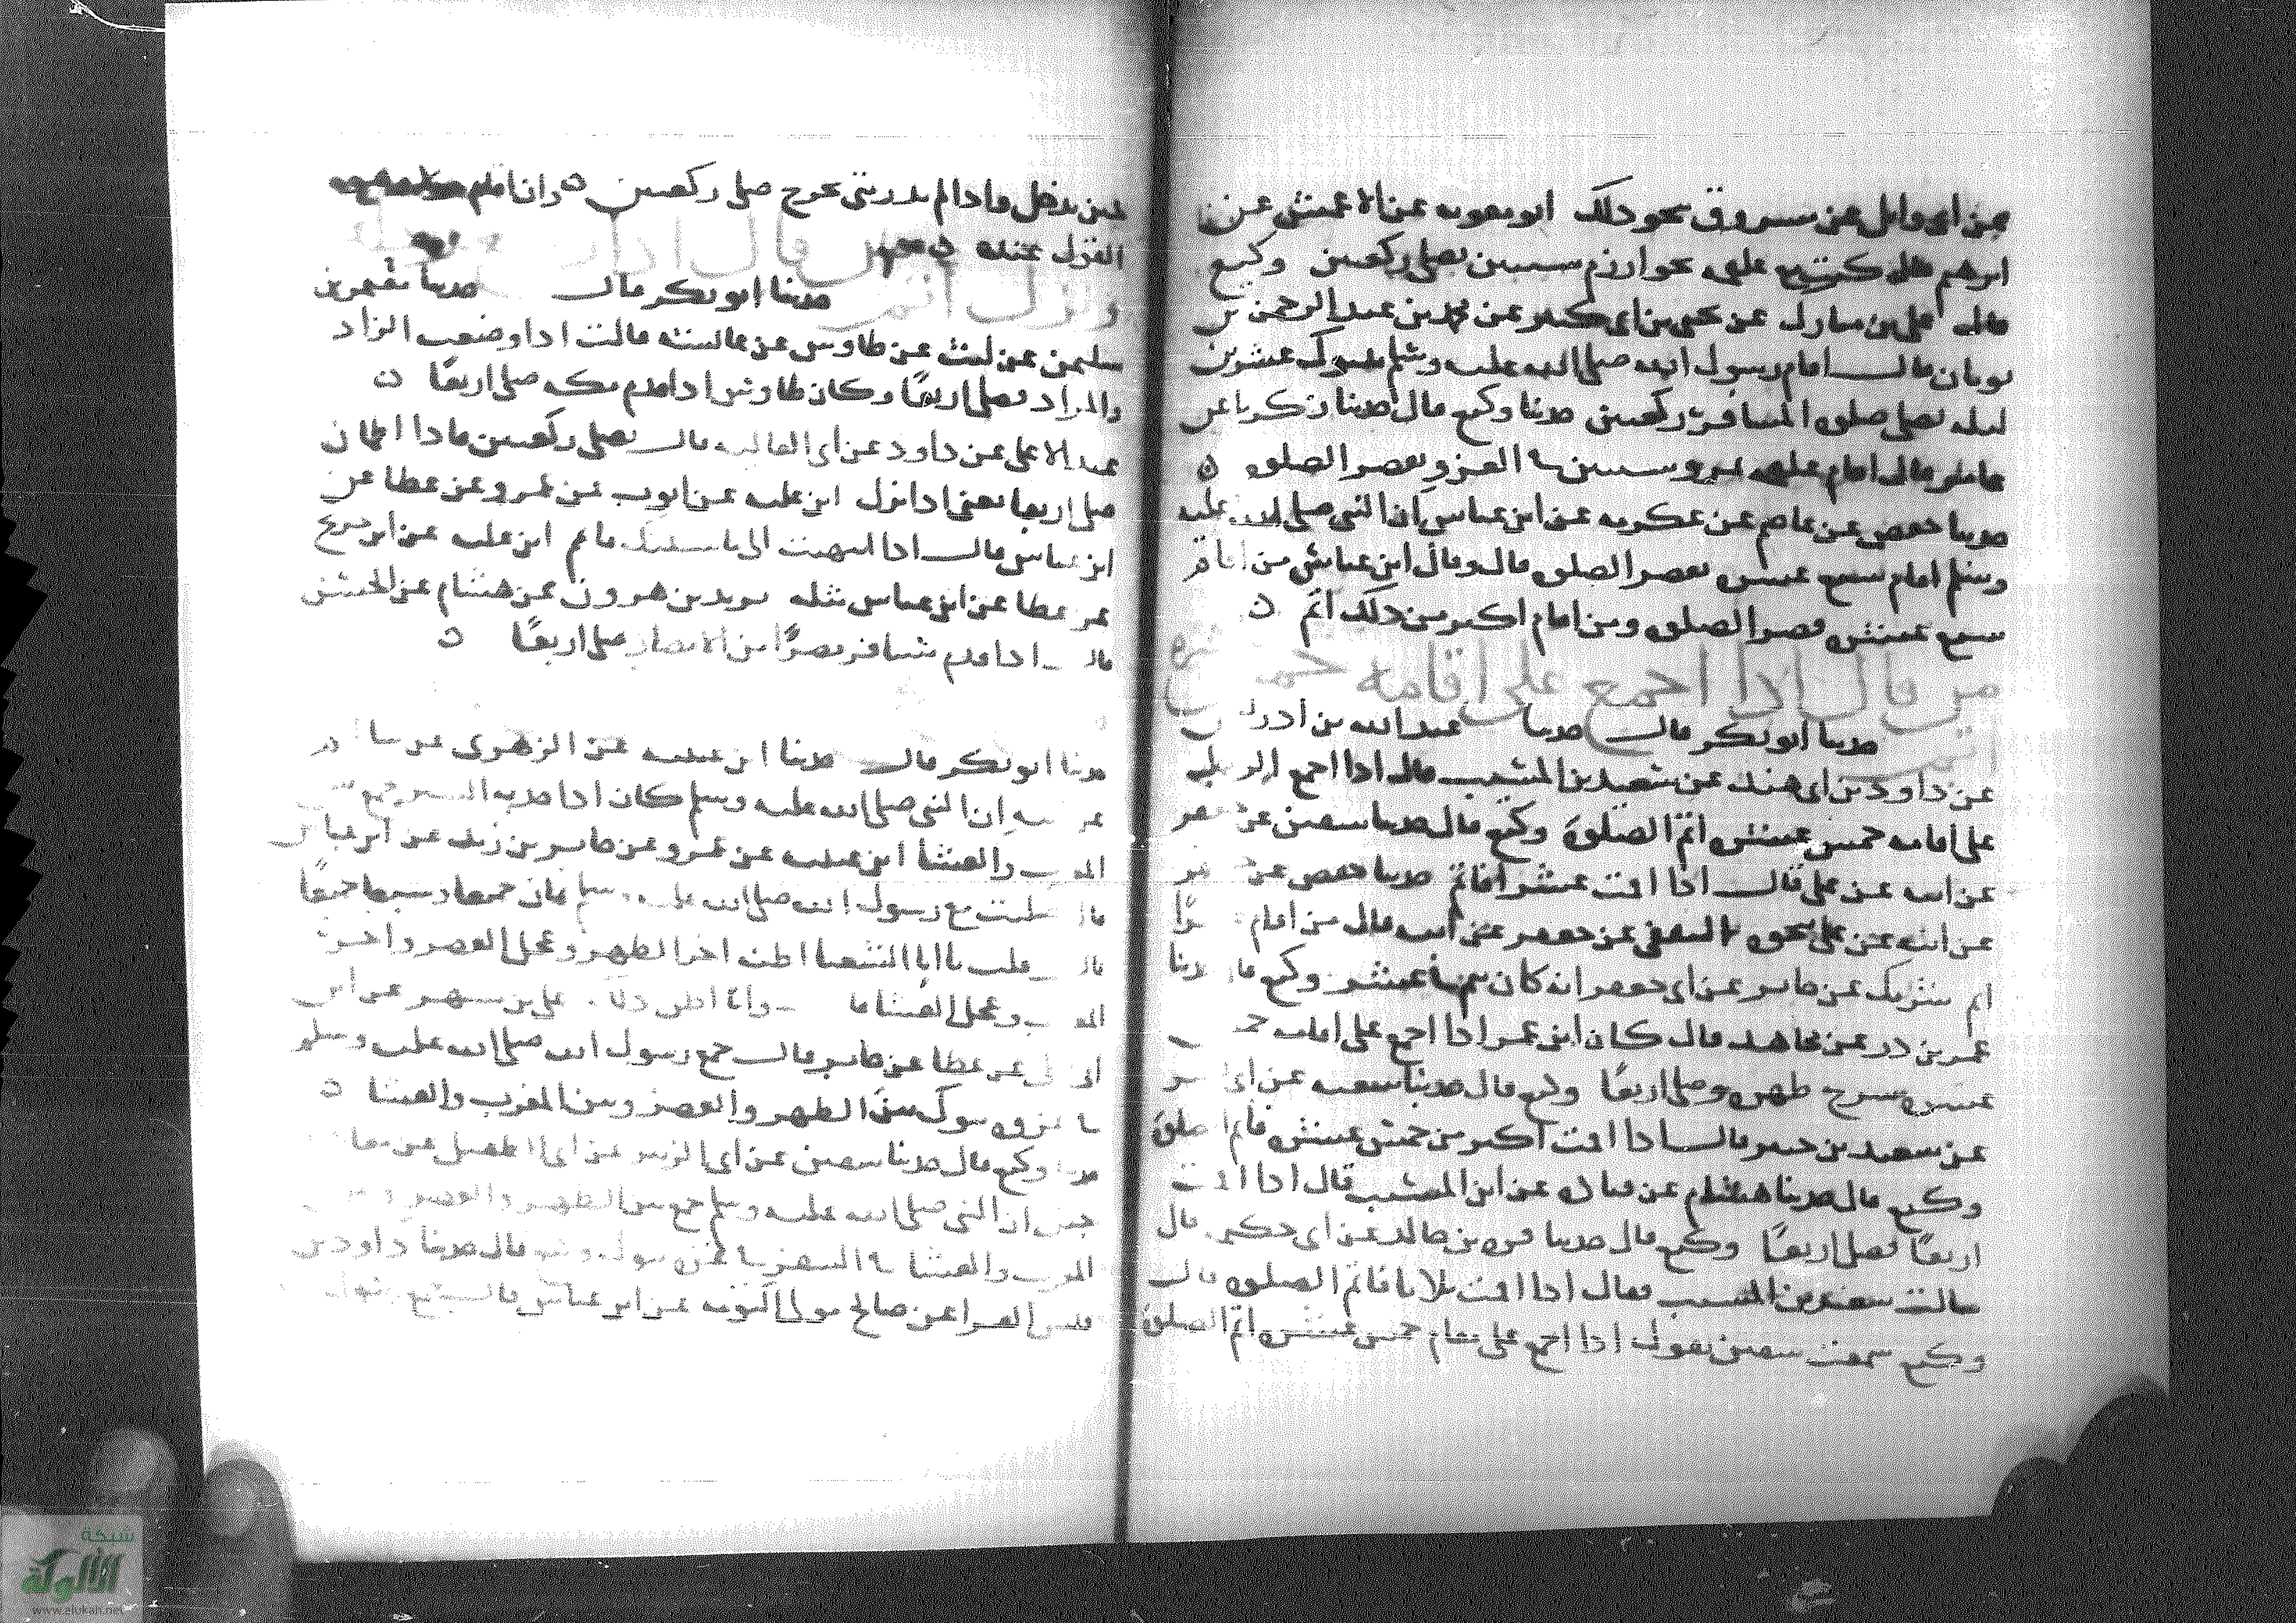 عن ابى وائل عن مسروق بنحو ذلك ابو معويه عن الاعمش عن
ابرهيم قال علقمه بخوارزم سنتين يصلى ركعتين وكيع
قال على بن مبارك عن يحيى بن ابى كثير عن محمد بن عبد الرحمن بن
ثوبان قال اقام رسول الله صلى الله عليه وسلم بتبوك عشرين
ليله يصلى صلوة المسافر ركعتين حدثنا وكيع قال حدثنا زكريا عن
عامر قال اقام علقمه بمرو سنتين فى الغزو يقصر الصلوه ن
حدثنا حفص عن عاصم عن عكرمه عن ابن عباس ان النبى صلى الله عليه
وسلم اقام سبع عشره يقصر الصلوه قال وقال ابن عباس من اقام
سبع عشره قصر الصلوه ومن اقام اكثر من ذلك اتم ن
من قال اذا اجمع على اقامه خمس عشره
اتم
حدثنا ابو بكر قال حدثنا عبد الله بن ادريس
عن داود بن ابى هند عن سعيد بن المسيب قال اذا اجمع الرجل
على اقامه خمس عشره اتم الصلوة وكيع قال حدثنا سفين عن جعفر
عن ابيه عن على قال اذا اقمت عشرا فاتم حدثنا حفص عن
عن ابيه عن على بنحوه الثقفى عن جعفر عن ابيه قال من اقام
اتم شريك عن جابر عن ابى جعفر انه كان يتم فى عشر وكيع قال حدثنا
عمر بن ذر عن مجاهد قال كان ابن عمر اذا اجمع على اقامه خمس
عشره سرح ظهره وصلى اربعًا وكيع قال حدثنا شعبه عن ابى بشر
عن سعيد بن جبير قال اذا اقمت اكثر من خمس عشره فاتم الصلوة
وكيع قال حدثنا هشام عن قتاده عن ابن المسيب قال اذا اقمت
اربعًا فصل اربعًا وكيع قال حدثنا قره بن خالد عن ابى حكيم قال
سالت سعيد بن المسيب فقال اذا اقمت ثلاثا فاتم الصلوه قال
وكيع سمعت سفين يقول اذا اجمع على مقام خمس عشره اتم الصلوة
حين يدخل واذا لم يدر متى يخرج صلى ركعتين ن وان اقام
القول عنده
حدثنا ابو بكر قال حدثنا معتمر بن
سليمن عن ليث عن طاوس عن عائشه قالت اذا وضعت الزاد
والمزاد فصل اربعًا وكان طاوس اذا قدم مكه صلى اربعًا ن
عبد الاعلى عن داود عن ابى العاليه قال يصلى ركعتين فاذا اطمان
صلى اربعا يعنى اذا نزل ابن عليه عن ايوب عن عمرو عن عطا عن
ابن عباس قال اذا انتهيت الى ماشيتك فاتم ابن عليه عن ابن جريج
عن عطا عن ابن عباس مثله يزيد بن هرون عن هشام عن الحسن
قال اذا قدم مسافر مصرًا من الامصار صلى اربعًا ن
حدثنا ابو بكر قال حدثنا ابن عيينه عن الزهرى عن سالم
عن ابيه ان النبى صلى الله عليه وسلم كان اذا جد به السير جمع بين
المغرب والعشا ابن عيينه عن عمرو عن جابر بن زيد عن ابن عباس
قال صليت مع رسول الله صلى الله عليه وسلم ثمان جميعا وسبعا جميعًا
قال قلت يا ابا الشعثا اظنه اخر الظهر وعجل العصر واخر
المغرب وعجل العشا قال وانا اظن ذلك على بن مسهر عن ابن
ابى ليلى عن عطا عن جابر قال جمع رسول الله صلى الله عليه وسلم
فى غزوه تبوك بين الظهر والعصر وبين المغرب والعشا ن
حدثنا وكيع قال حدثنا سفين عن ابى الزبير عن ابى الطفيل عن معاذ
جبل ان النبى صلى الله عليه وسلم جمع بين الظهر والعصر وبين
المغرب والعشا فى السفر فى غزوه تبوك وكيع قال حدثنا داود بن
قيس الفرا عن صالح مولى التومه عن ابن عباس قال جمع